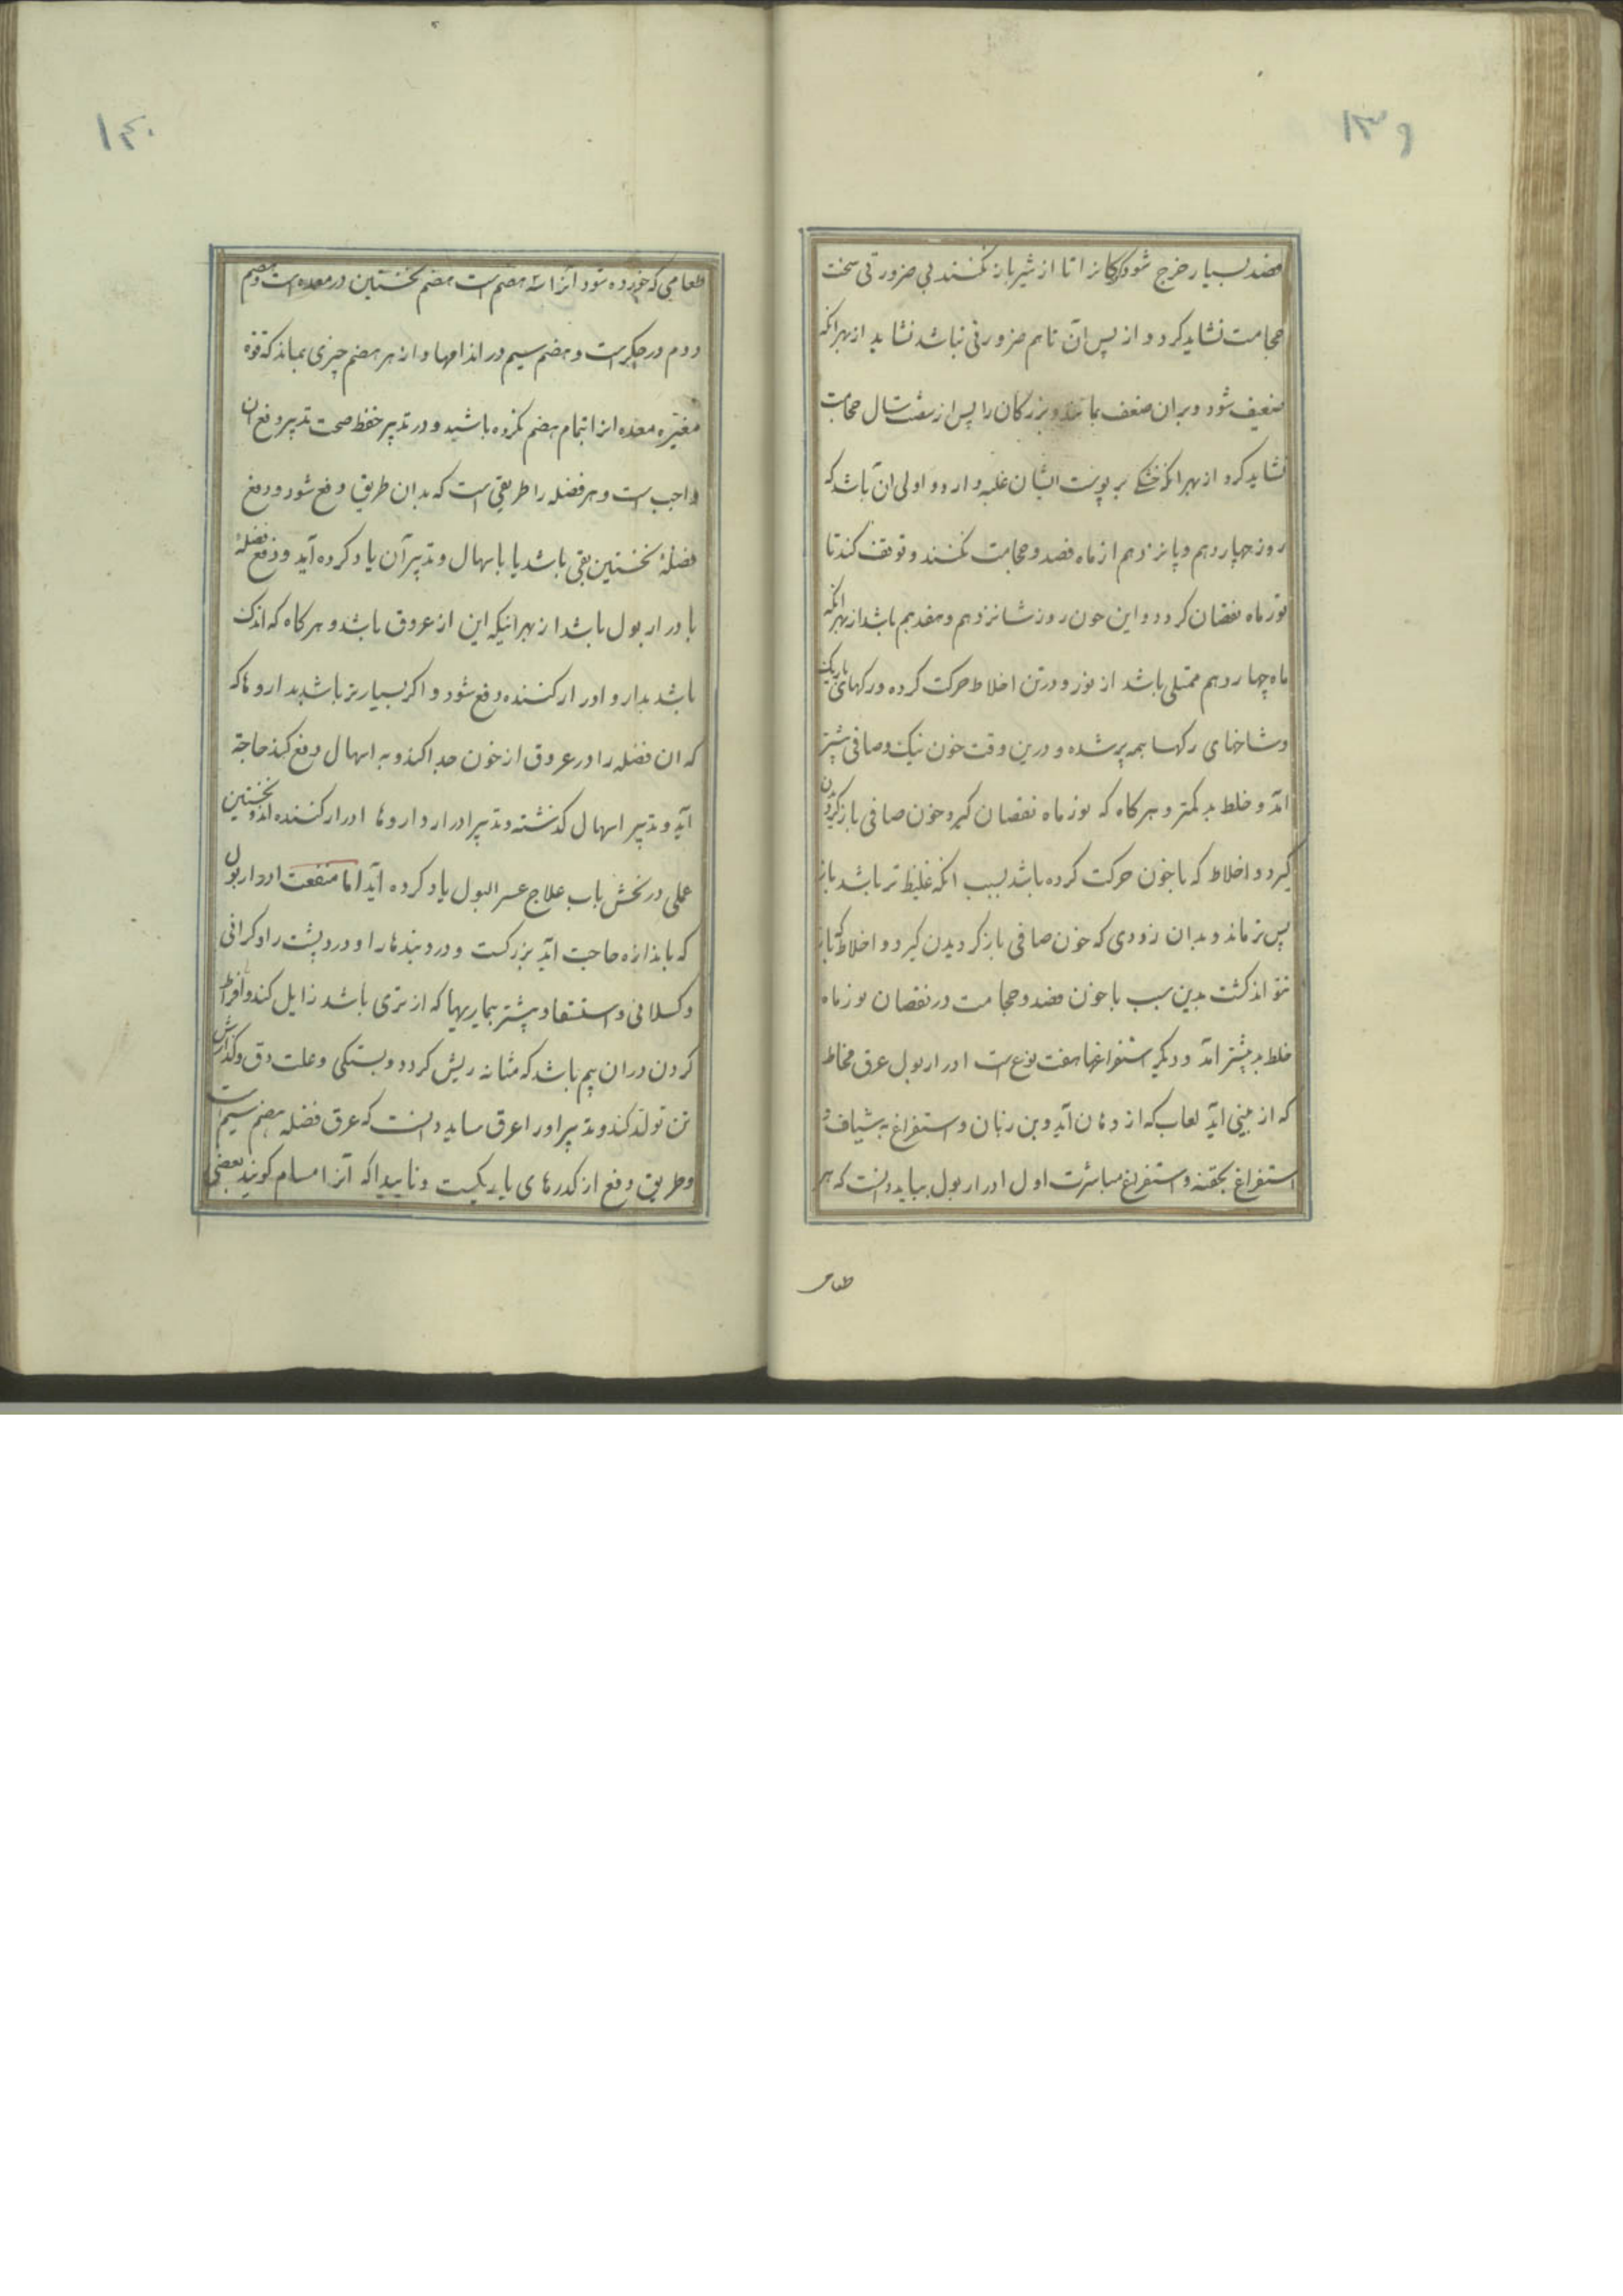 ۱۳۹
فصد بسیار خرج شود کودکانرا تا از شیر باز نکنند بی ضرورتی سخت
حجامت نشاید کرد و از پس آن تا هم ضرورتی نباشد نشاید از بهر انکه
ضعیف شود و بران ضعف بماند و بزرکان را پس از شصت سال حجامت
نشاید کرد از بهر انکه خشکی بر پوست ایشان غلبه دارد و اولی آن باشد که
روز چهاردهم و پانزدهم از ماه فصد و حجامت نکنند و توقف کند تا
نور ماه نقصان کرد و این خون روز شانزدهم و هفدهم باشد از بهر انکه
ماه چهاردهم ممتلی باشد از نور و در تن اخلاط حرکت کرده و رکهای باریک
و شاخهای رکها همه پر شده و درین وقت خون نیک و صافی بیشتر
آید و خلط بد کمتر و هر کاه که نور ماه نقصان کیرد خون صافی باز کردیدن
کیرد و اخلاط که با خون حرکت کرده باشد بسبب انکه غلیظ تر باشد باز
پس تر ماند و بدان زودی که خون صافی باز کردیدن کیرد و اخلاط که باز
نتواند کشت بدین سبب با خون فصد و حجامت در نقصان نور ماه
خلط بد بیشتر آید و دیکر استفراغها هفت نوع است ادرار بول عرق مخاط
که از بینی آید لعاب که از دهان آید و بن زبان و استفراغ به شیاف و
استفراغ بحقنه و استفراغ مباشرت اول ادرار بول بباید دانست که هر
طعامی
۱۴۰
طعامی که خورده شود آنرا سه هضم است هضم نخستین در معده است و هضم
دوم در جکر است و هضم سیم در اندامها و از هر هضم چیزی بماند که قوه
مغیره معده انرا تمام هضم نکرده باشید و در تدبیر حفظ صحت تدبیر دفع ان
واجب است و هر فضله را طریقی است که بدان طریق دفع شود و دفع
فضلهٔ نخستین بقی باشد یا باسهال و تدبیر آن یاد کرده آید و دفع فضلهٔ
بادرار بول باشد از بهر انیکه این از عروق باشد و هر کاه که اندک
باشد بدارو ادرار کننده دفع شود و اکر بسیار تر باشد بدارو ها که
که ان فضله را در عروق از خون جدا کند و به اسهال دفع کند حاجة
آید و تدبیر اسهال کذشته و تدبیر ادرار دارو ها ادرار کننده اندر نخستین
علی در بخش باب علاج عسر البول یاد کرده آید اما منفعت ادرار بول
که باندازه حاجت آید بزرکست و درد بندها را و درد پشت را و کرانی
و کسلانی و استسقا و بیشتر بیماریها که از تری باشد زایل کند و افراط
کردن دران بیم باشد که مثانه ریش کردد و بستکی و علت دق و کدازش
تن تولد کند و تدبیر اور اعرق بباید دانست که عرق فضله هضم سیم است
و طریق دفع از کدرهای باریکست و ناپیدا که آنرا مسام کویند بعضی